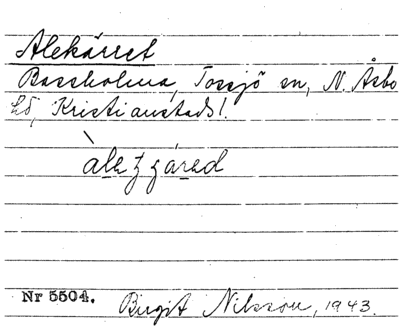 Alekärret
Bassholma, Tossjö sn, N. Åsbo
hd, Kristianstads l.
Nr 5504. Birgit Nilsson, 1943.